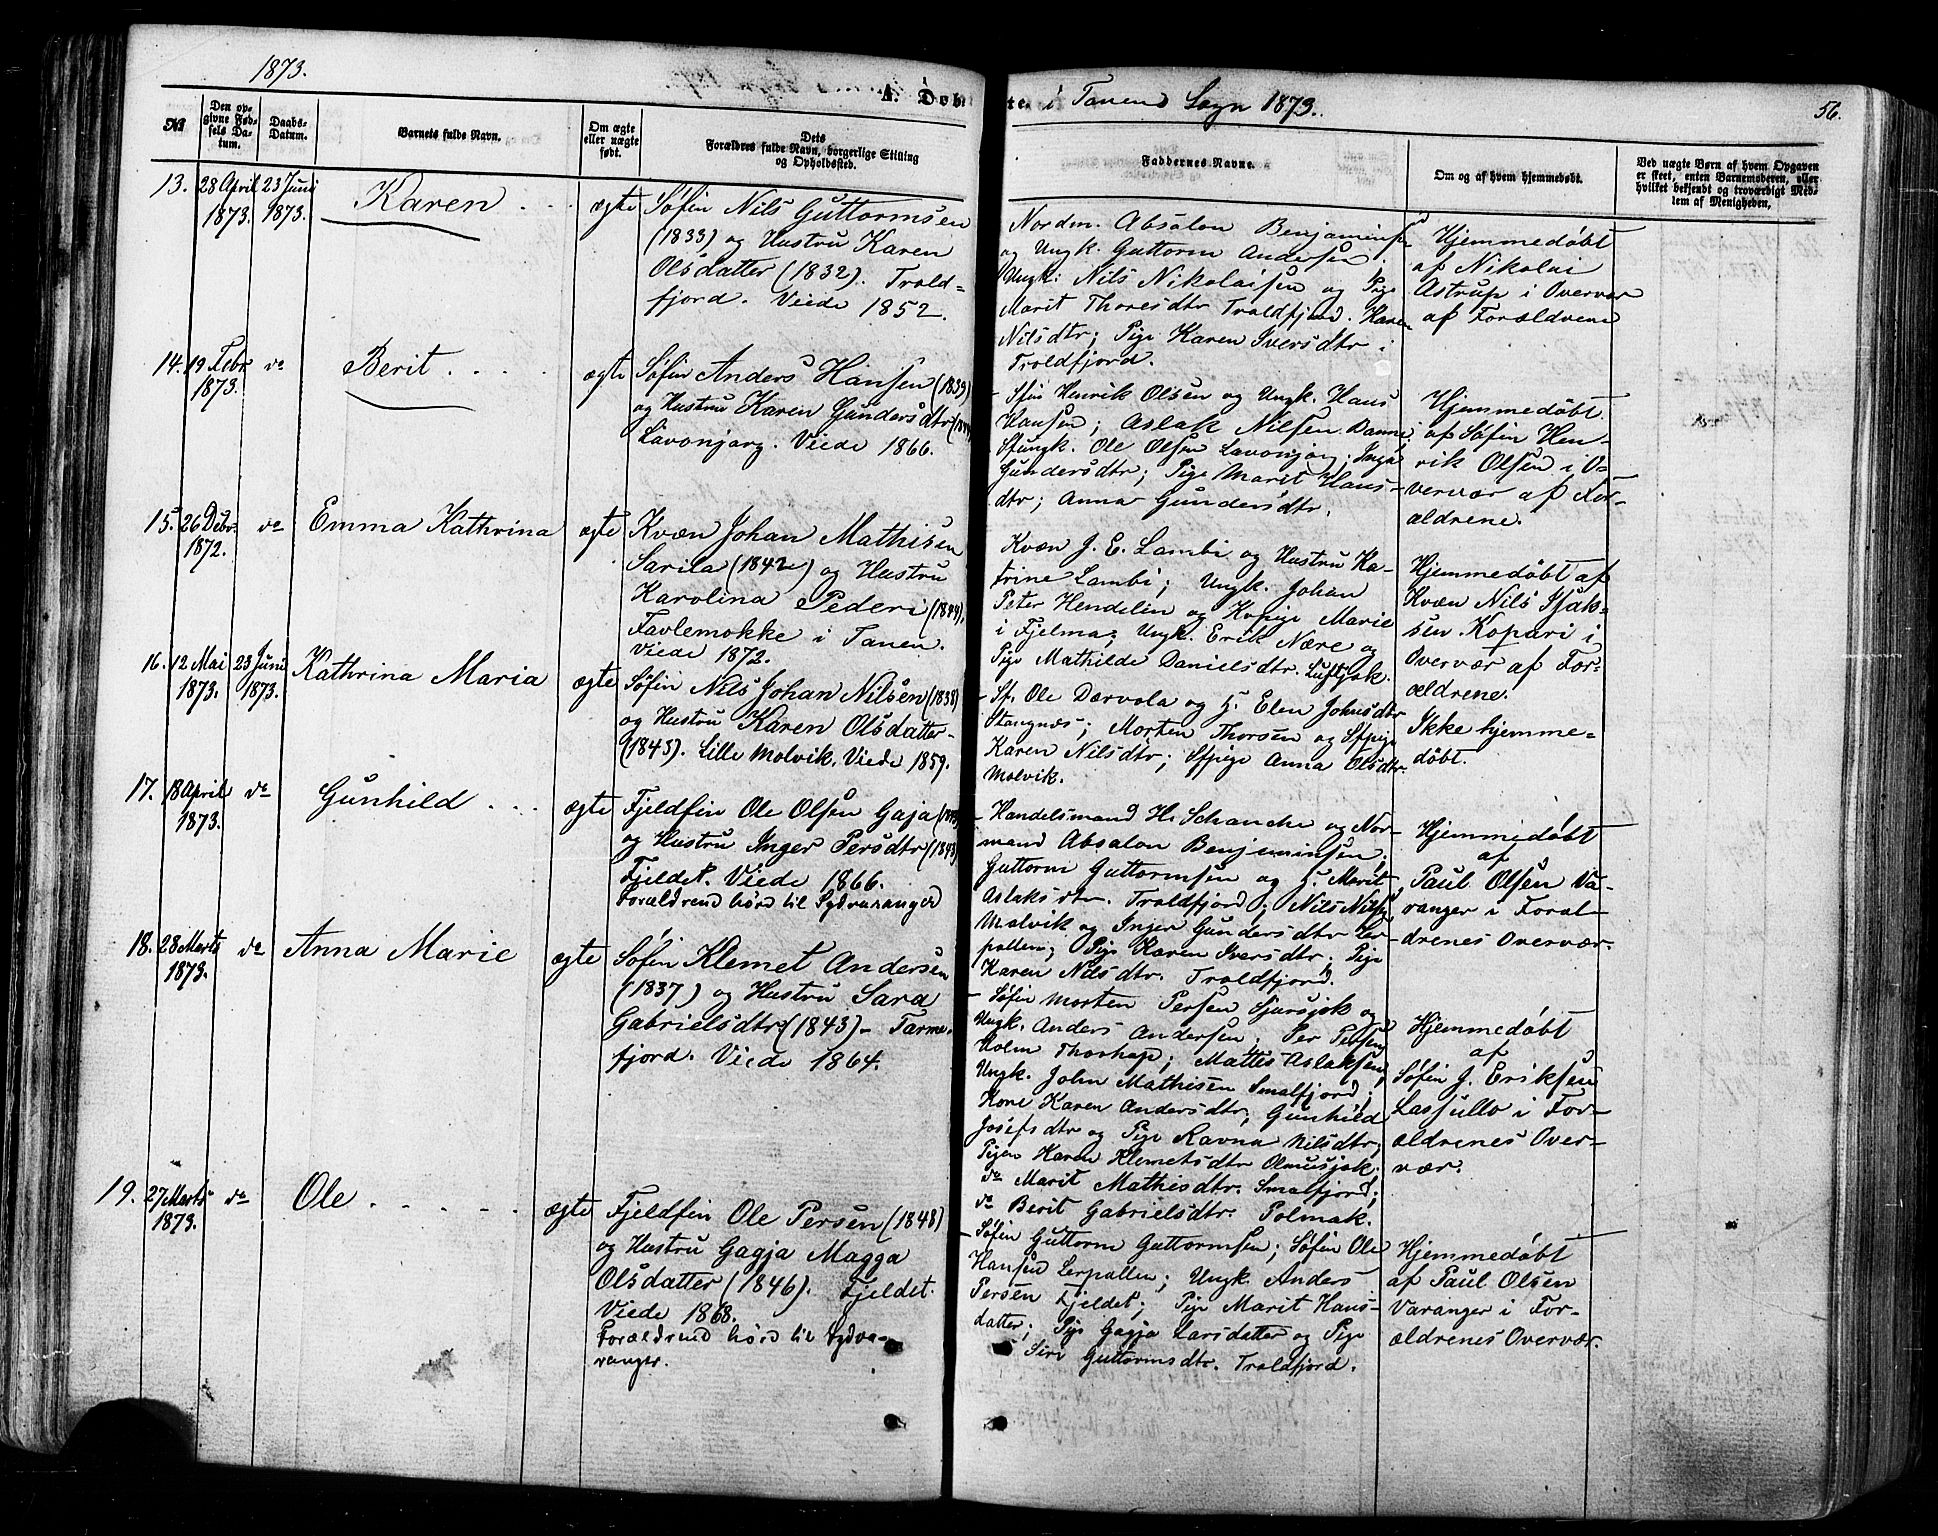 1873.
A. Døbte i Tanens Sogn 1873.
56.
No
Den opgivne Fødsels Datum.
Daabs-Datum.
Barnets fulde Navn.
Om ægte eller uægte født.
Dets Forældres fulde Navn, borgerlige Stilling og Opholdssted.
Faddernes Navne.
Om og af hvem hjemmedøbt.
Ved uægte Børn af hvem Opgaven er skeet, enten Barnemoderen, eller hvilket bekjendt og troværdigt Medlem af Menigheden.
13. 28 April 1873. 23 Juni 1873. Karen . . . ægte
Søfin Nils Guttormsen
(1833) og Hustru Karen
Olsdatter (1832). Trold-
fjord. Viede 1852.
Nordm. Absalon Benjaminsen
og Ungk. Guttorm Andersen;
Ungk: Nils Nikolaisen og Pige
Marit Thoresdtr Troldfjord. Karen
Nilsdtr; Pige Karen Iversdtr i
Troldfjord.
Hjemmedøbt
af Nikolai
Astrup i Overvær
af Forældrene
14. 19 Febr 1873. do Berit . . . . ægte
Søfin Anders Hansen (1839)
og Hustru Karen Gundersdtr
Lavonjarg. Viede 1866.
- Sfin Henrik Olsen og Ungk. Hans
Hansen; Aslak Nilsen
Sfungk. Ole Olsen Lavonjarg; Inga
Gundersdtr; Pige Marit Hans-
dtr; Anna Gundersdtr.
Hjemmedøbt
af Søfin Hen-
rik Olsen i O-
vervær af For-
ældrene.
15. 26 Debr. 1872. do Emma Kathrina ægte
Kvæn Johan Mathisen
Sarila (1842) og Hustru
Karolina Pederi (1844).
Favlemokke i Tanen.
Viede 1872.
Kvæn J. E. Lambi og Hustru Ka-
trine Lambi; Ungk. Johan
Peter Hendelin og Kvpige Marie
i Fjelma; Ungk. Erik Nære og
Pige Mathilde Danielsdtr. Luftjok.
Hjemmedøbt af
Kvæn Nils Isak-
sen Kopari i
Overvær af For-
ældrene.
16. 12 Mai 1873. 23 Juni 1873. Kathrina Maria ægte
Søfin Nils Johan Nilsen (1838)
og Hustru Karen Olsdatter
(1843). Lille Molvik. Viede 1859.
- Sf. Ole Dervola og H. Elen Johnsdtr
Stangnæs; Morten Thorsen og Sfpige
Karen Nilsdtr; Sfpige Anna Olsdtr.
Molvik.
Ikke hjemme-
døbt.
17. 18 April 1873. do Gunhild . . . ægte
Fjeldfin Ole Olsen Gaja
og Hustru Inger Persdtr (1843)
Fjeldet. Viede 1866.
Forældrene høre til Sydvaranger
- Handelsmand H. Schanche og Nor-
mand Absalon Benjaminsen;
Guttorm Guttormsen og H. Marit
Aslaksdtr. Troldfjord; Nils Nilsen
Molvik og Inger Gundersdtr Ler-
pollen; Pige Karen Iversdtr; Pige
Karen Nilsdtr. Troldfjord.
Hjemmedøbt
af
Paul Olsen Va-
ranger i Foræl-
drenes Overvær.
18. 28 Marts 1873. do Anna Marie ægte
Søfin Klemet Andersen
(1837) og Hustru Sara
Gabrielsdtr (1843) - Tarme-
fjord. Viede 1864.
- Søfin Morten Persen Sjursjok og
Ungk. Anders Andersen; Per Persen
Holm Thorhop; Mattis Aslaksen,
Ungk. John Mathisen Smalfjord;
Kone Karen Andersdtr; Gunhild
Josefsdtr og Pige Ravna Nilsdtr;
Pigen Karen Klemetsdtr Olmusjok.
do Marit Mathisdtr. Smalfjord;
do Berit Gabrielsdtr. Polmak.
Hjemmedøbt
af
Søfin J. Eriksen
Lassullo i For-
ældrenes Over-
vær.
19. 27 Marts 1873. do Ole . . . . . ægte
Fjeldfin Ole Persen (1848)
og Hustru Gagja Magga
Olsdatter (1846). Fjeldet.
Viede 1868.
Forældrene høre til Sydva-
ranger.
- Søfin Guttorm Guttormsen; Søfin Ole
Hansen Lerpollen; Ungk. Anders
Persen Fjeldet; Pige Marit Hans-
datter; Pige Gagja Larsdatter og Pige
Siri Guttormsdtr. Troldfjord.
Hjemmedøbt
af Paul Olsen
Varanger i For-
ældrenes Overvær.